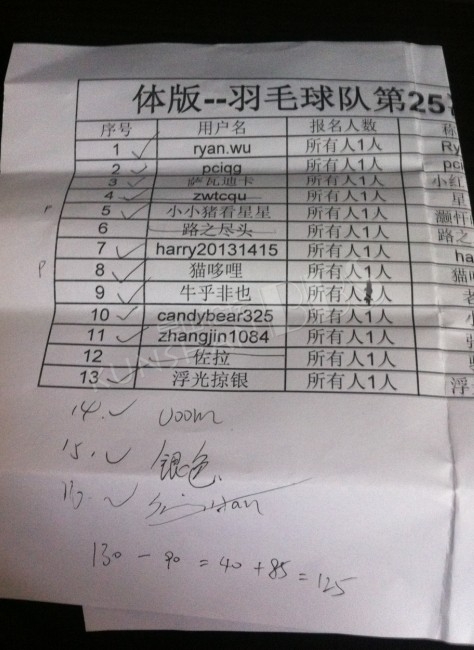 体版--羽毛球队第25
序号 用户名 报名人数
1 ryan.wu 所有人1人 Ry
2 pciqg 所有人1人 pci
3 萨瓦迪卡 所有人1人 小红
4 zwtcqu 所有人1人 星
5 小小猪看星星 所有人1人 灏忏
6 路之尽头 所有人1人 路之
7 harry20131415 所有人1人 ha
8 猫哆哩 所有人1人 猫
9 牛乎非也 所有人1人 老
10 candybear325 所有人1人 小
11 zhangjin1084 所有人1人
12 佐拉 所有人1人
13 浮光掠银 所有人1人 浮
14. voom
15. 银色
130 - 90 = 40 + 85 = 125